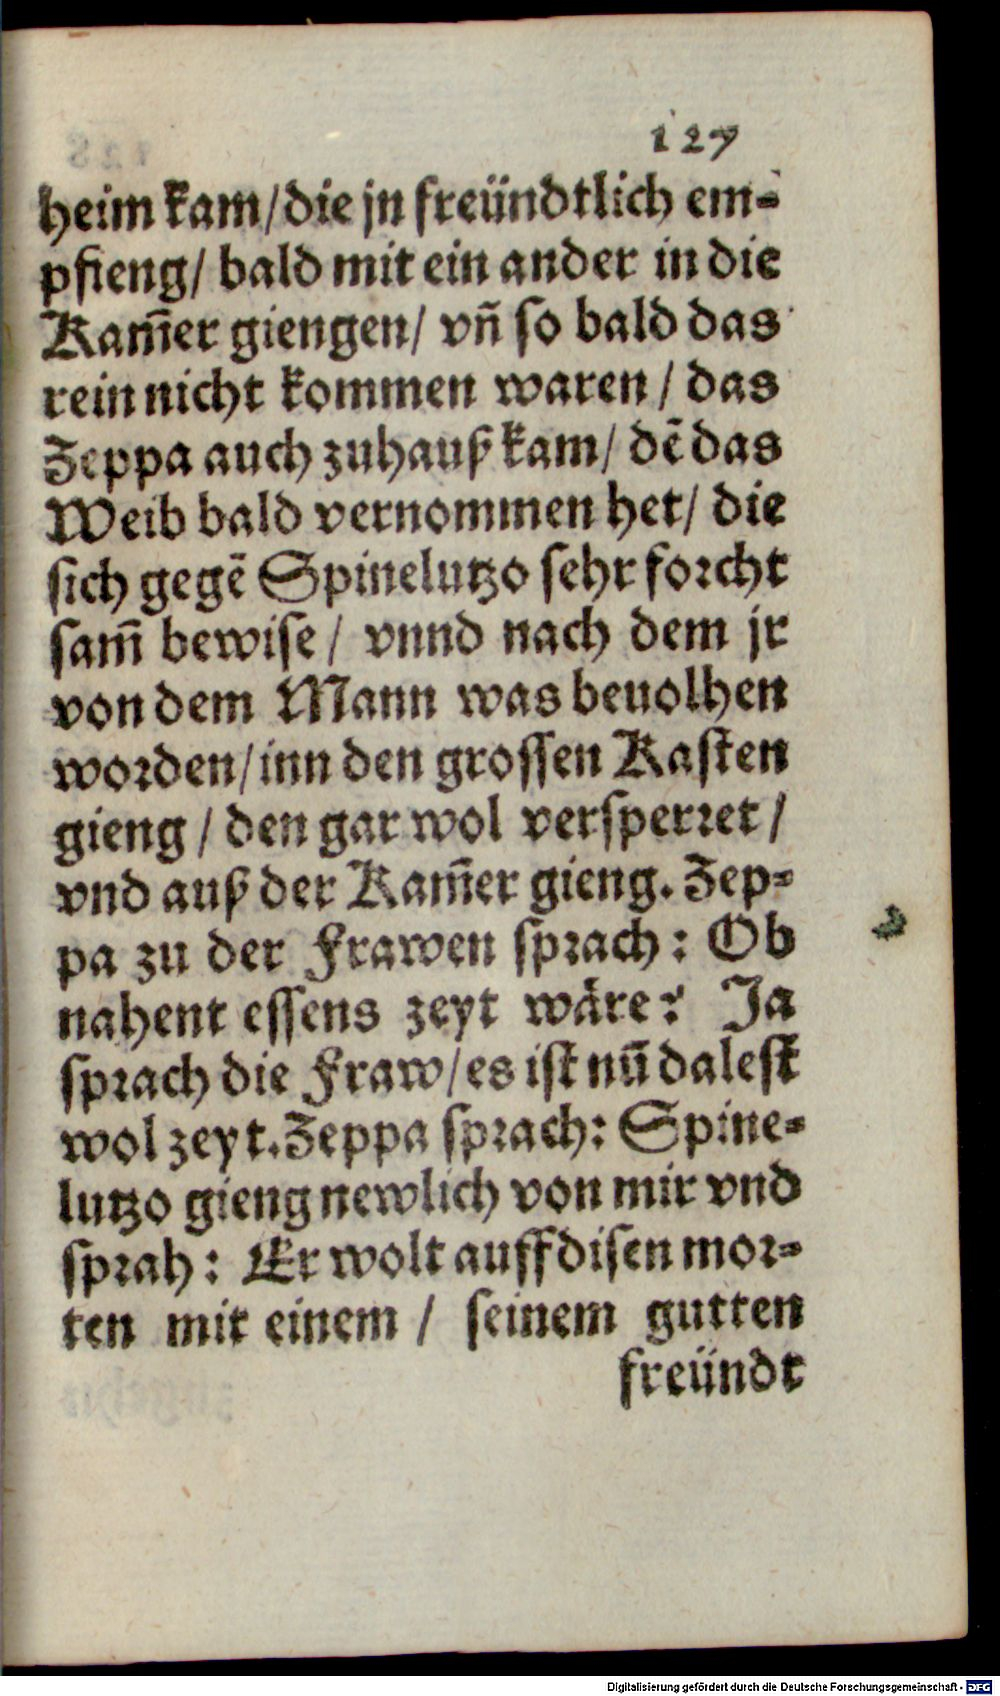 127
heim kam/die jn freündtlich em-
pfieng/ bald mit ein ander in die
Kam̄er giengen/ vn̄ so bald das
rein nicht kommen waren / das
Zeppa auch zuhauß kam/ dē das
Weib bald vernommen het/ die
sich gegē Spinelutzo sehr forcht
sam̄ bewise / vnnd nach dem jr
von dem Mann was beuolhen
worden/inn den grossen Kasten
gieng / den gar wol versperret /
vnd auß der Kam̄er gieng. Zep-
pa zu der Frawen sprach: Ob
nahent essens zeyt wäre? Ja
sprach die Fraw/es ist nū dalest
wol zeyt. Zeppa sprach: Spine-
lutzo gieng newlich von mir vnd
sprah: Er wolt auff disen mor-
ten mit einem / seinem gutten
freündt
Digitalisierung gefördert durch die Deutsche Forschungsgemeinschaft - DFG